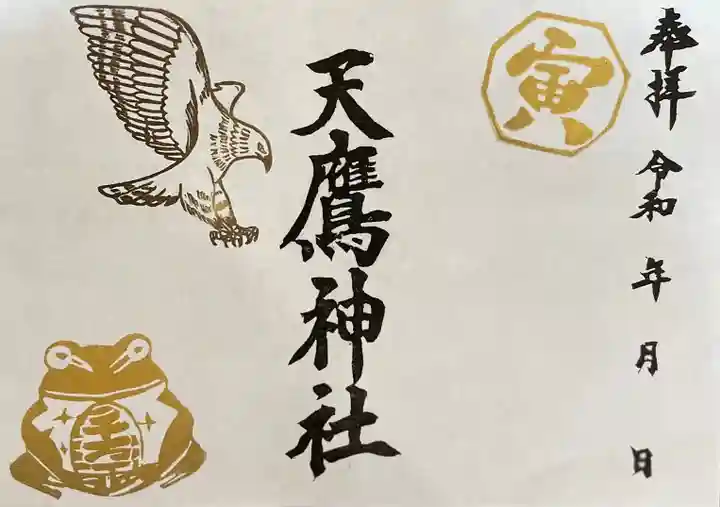 奉拝 令和 年 月 日
寅
天鷹神社